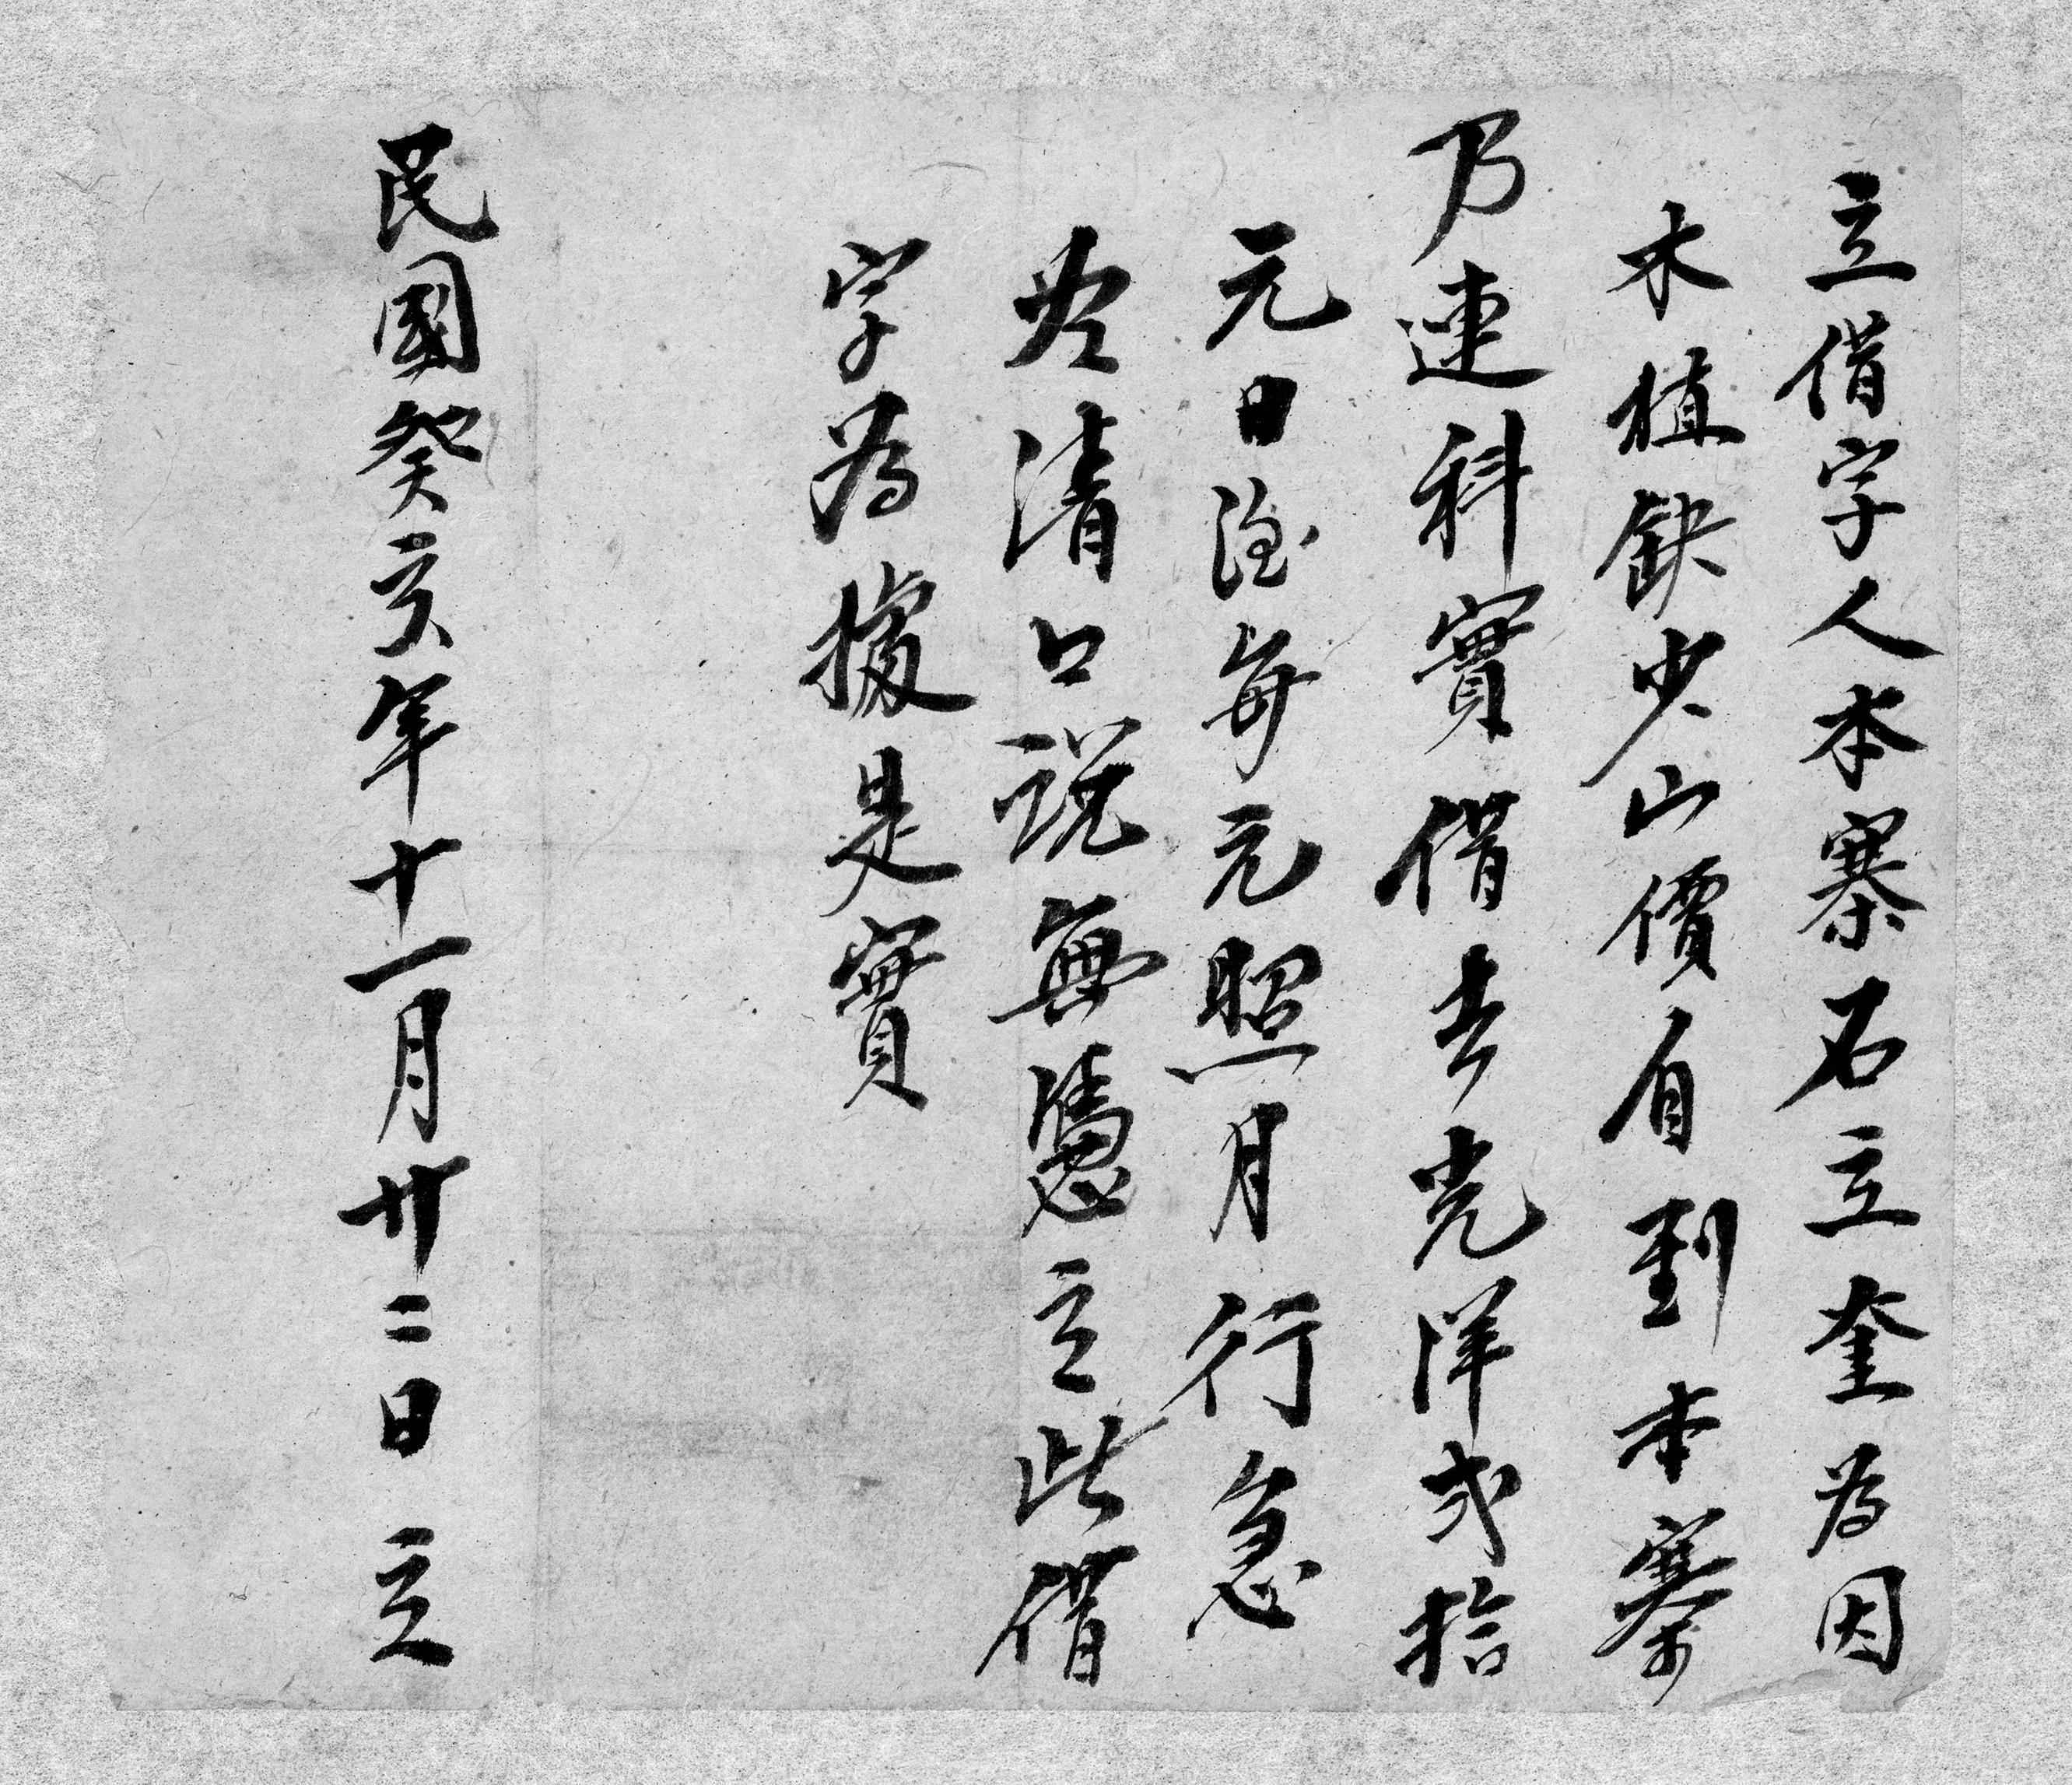 立借字人本寨石立奎為因
木植缺少山價自到本寨
乃連科實借去光洋弍拾
元日後每元照月行息
為清口說無憑立此借
字為據是實
民國癸亥年十一月廿二日立